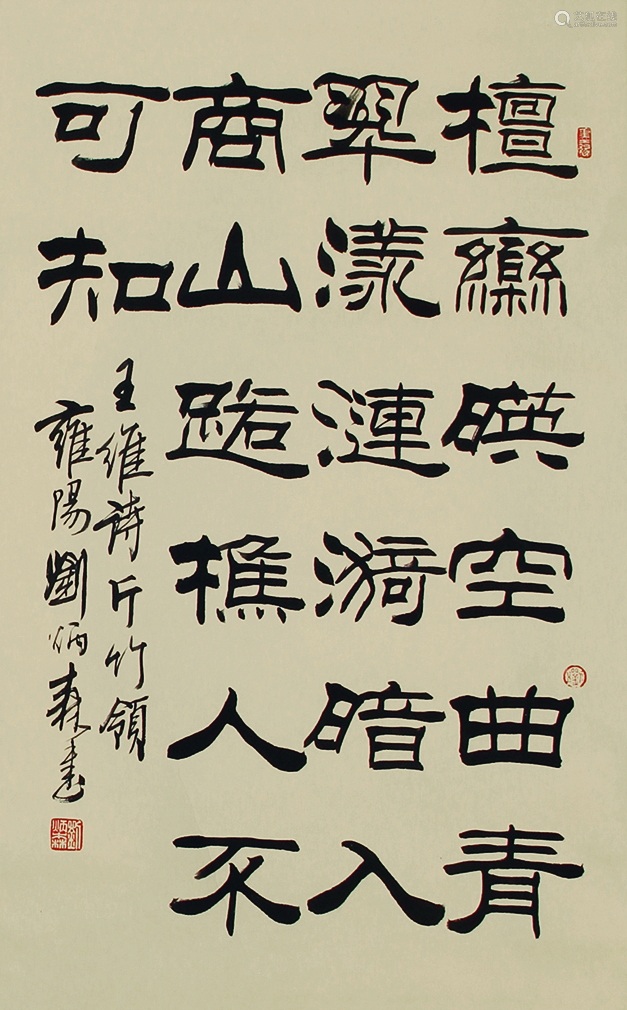 檀欒暎空曲青
翠漾漣漪暗入
商山路樵人不
可知
王維詩斤竹領
雍陽劉炳森書
劉炳森